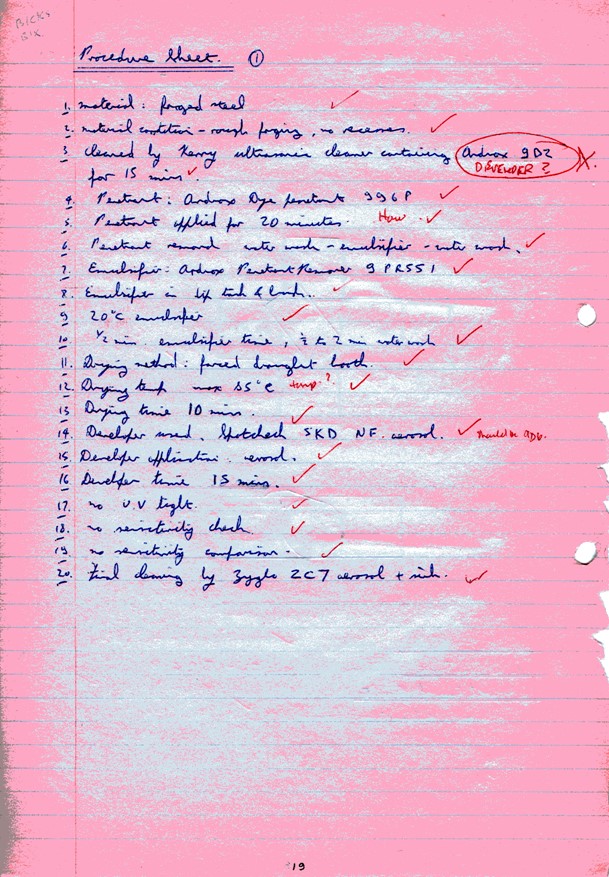 BICKS
BIX
Procedure Sheet. ①
1. material : forged steel
2. material condition - rough forging, no recesses.
3 cleaned by Kerry ultrasonic cleaner containing Ardrox 9D2
DEVELOPER ? X.
for 15 mins
4. Penetrant : Ardrox Dye penetrant 996P
5. Penetrant applied for 20 minutes. How.
6 Penetrant removal water wash - emulsifier - water wash.
7. Emulsifier : Ardrox Penetrant Remover 9PR551
8. Emulsifier in dip tank & brush..
9 20°C emulsifier
10. ½ min. emulsifier time, ½ to 2 min water wash
11. Drying method : forced draught booth.
12. Drying temp max 55°C temp ?
13 Drying time 10 mins.
14. Developer used. Spotcheck SKD NF. aerosol. should be 9D6.
15 Developer application. aerosol.
16 Developer time 15 mins.
17. no U.V light.
18. no sensitivity check.
19. no sensitivity comparison -
20. Final cleaning by Zyglo ZC7 aerosol +
19